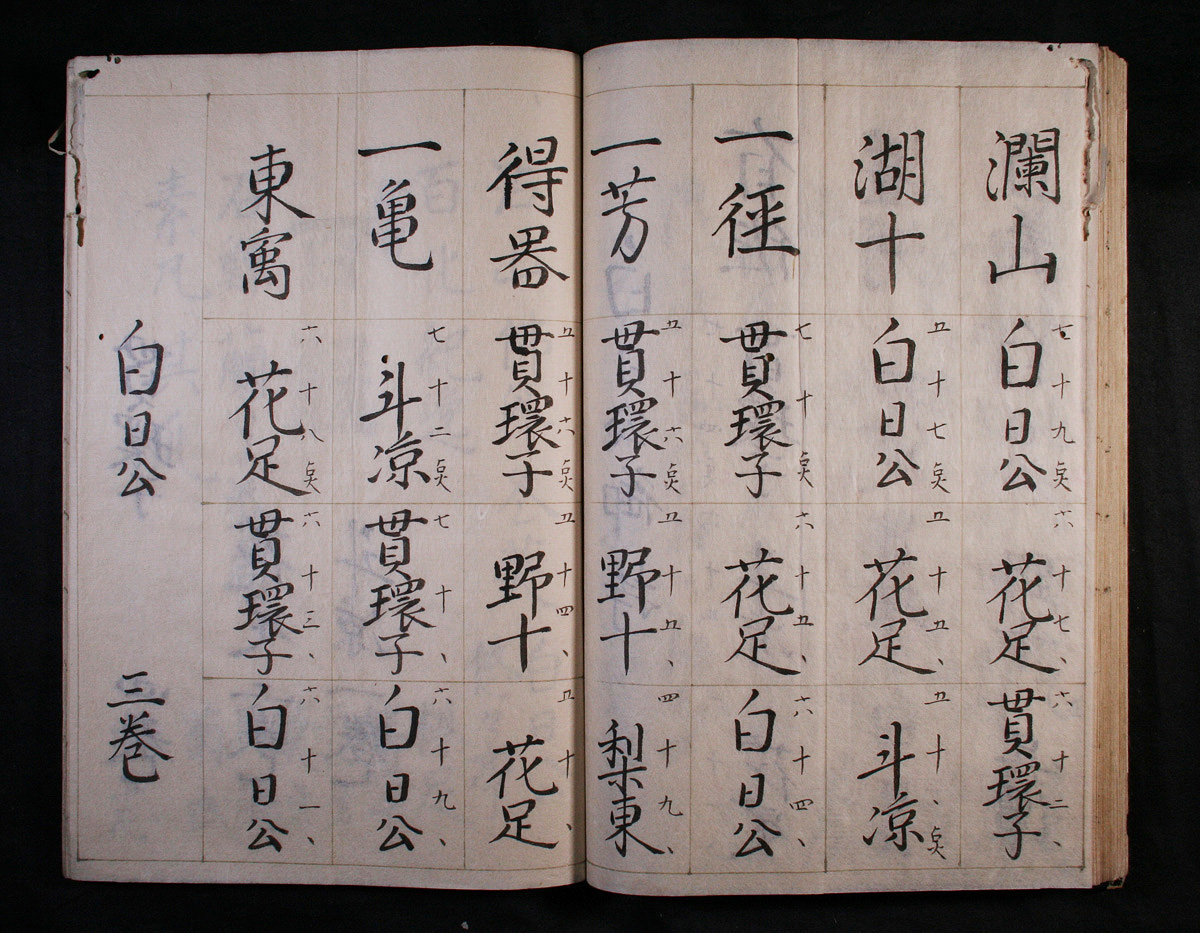 瀾山
七十九点
白日公
六十七、
花足
六十二、
貫環子
湖十
五十七点
白日公
五十五、
花足
五十、点
斗凉
一徑
七十点
貫環子
六十五、
花足
六十四、
白日公
一芳
五十六点
貫環子
五十五、
野十
四十九、
梨東
得器
五十六点
貫環子
五十四、
野十
五十、
花足
一亀
七十二点
斗凉
七十、
貫環子
六十九、
白日公
東寓
六十八点
花足
六十三、
貫環子
六十一、
白日公
白日公 三巻